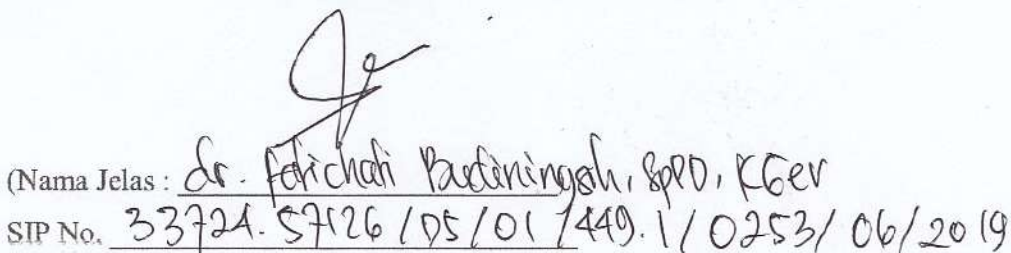 (Nama Jelas : dr. Fatichati Budiningsih, SpPD, KGer
SIP No. 33724.57126/05/01/449.1/0253/06/2019